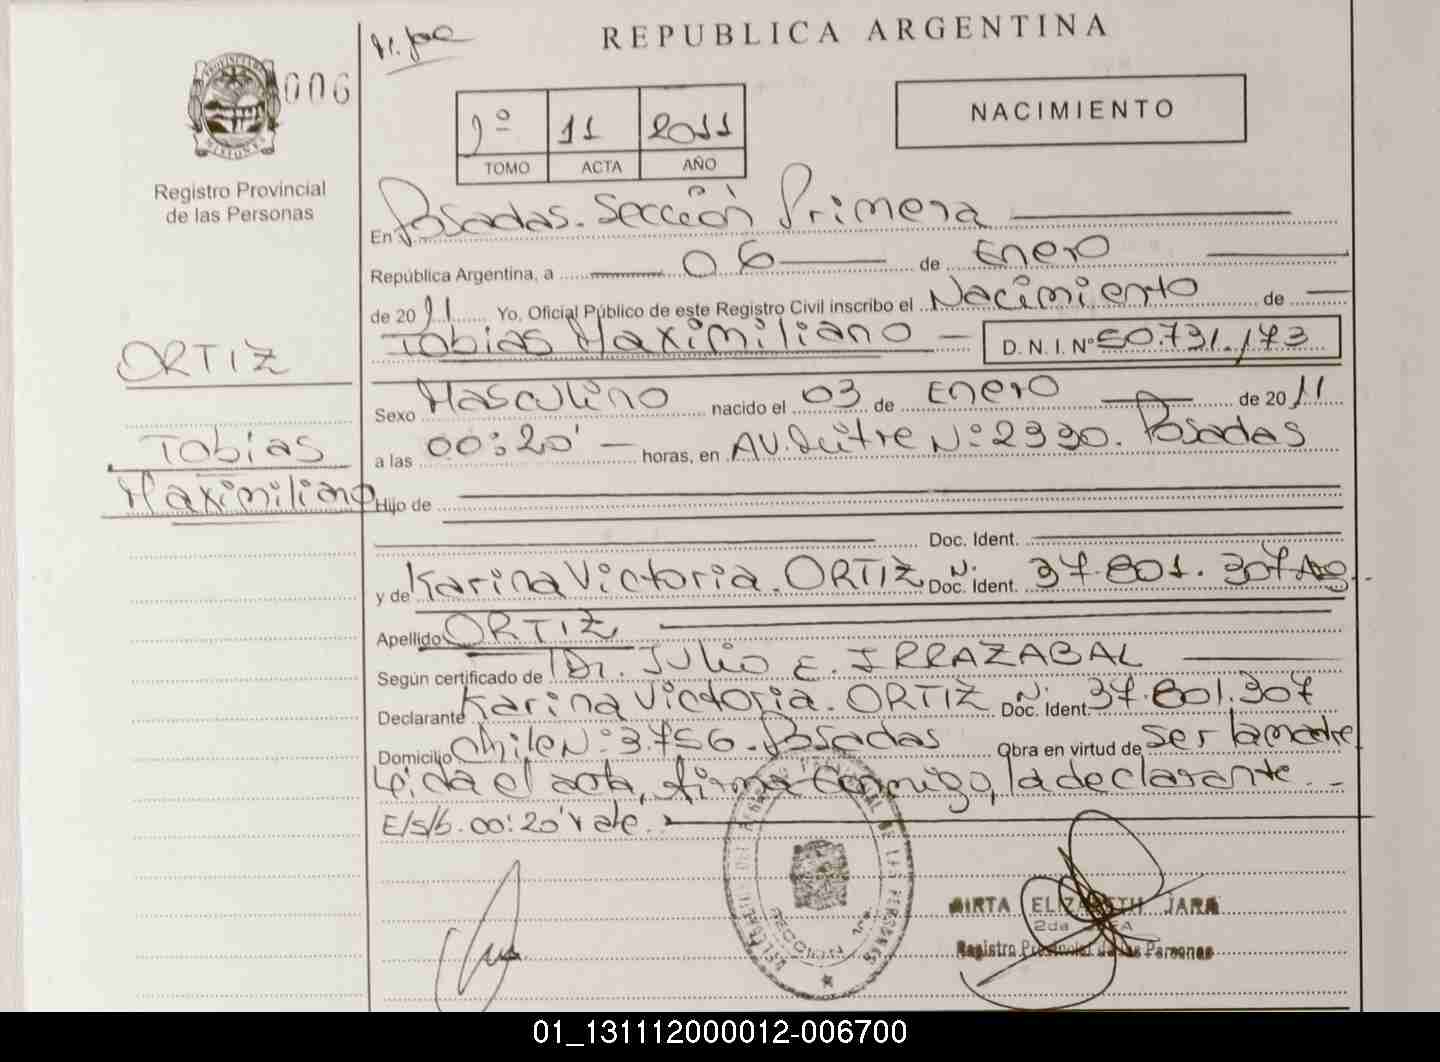 N. Jara
REPUBLICA ARGENTINA
006
1º 11 2011
TOMO ACTA AÑO
NACIMIENTO
Registro Provincial
de las Personas
En Posadas. Sección Primera
República Argentina, a 06 de Enero
de 2011 Yo, Oficial Público de este Registro Civil inscribo el Nacimiento de
Tobias Maximiliano D. N. I. Nº 50.731.173
ORTIZ
Sexo Masculino nacido el 03 de Enero de 2011
Tobias
Maximiliano
a las 00:20' horas, en AV. Mitre Nº 2330. Posadas
Hijo de
Doc. Ident.
y de Karina Victoria. ORTIZ Doc. Ident. N: 37.801.307
Apellido ORTIZ
Según certificado de Dr. Julio E. IRRAZABAL
Declarante Karina Victoria. ORTIZ Doc. Ident. N: 37.801.307
Domicilio Chile Nº 3.756. Posadas Obra en virtud de ser la madre
Leída el acta, firma conmigo, la declarante.
E/s/b. 00:20' vale.
SECCION 1ra
MIRTA ELIZABETH JARA
2da
Registro Provincial de las Personas
01_131112000012-006700